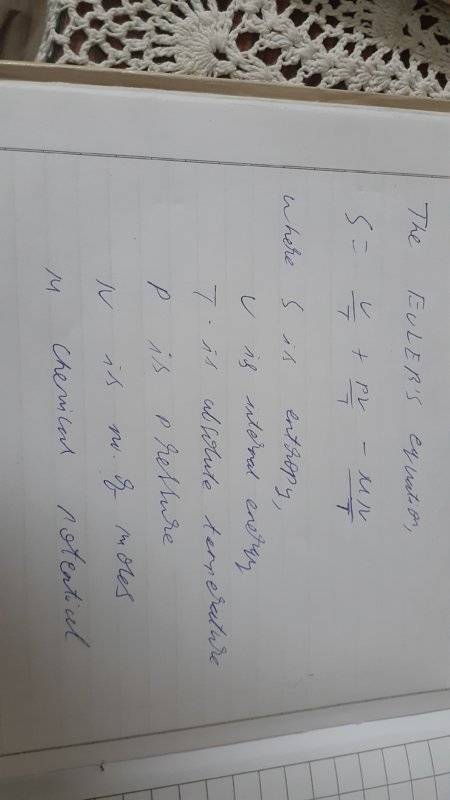 The EULER'S equation,
S = U/T + PV/T - MN/T
where S is entropy,
U is internal energy
T. is absolute temperature
P is pressure
N is no. of moles
M chemical potential